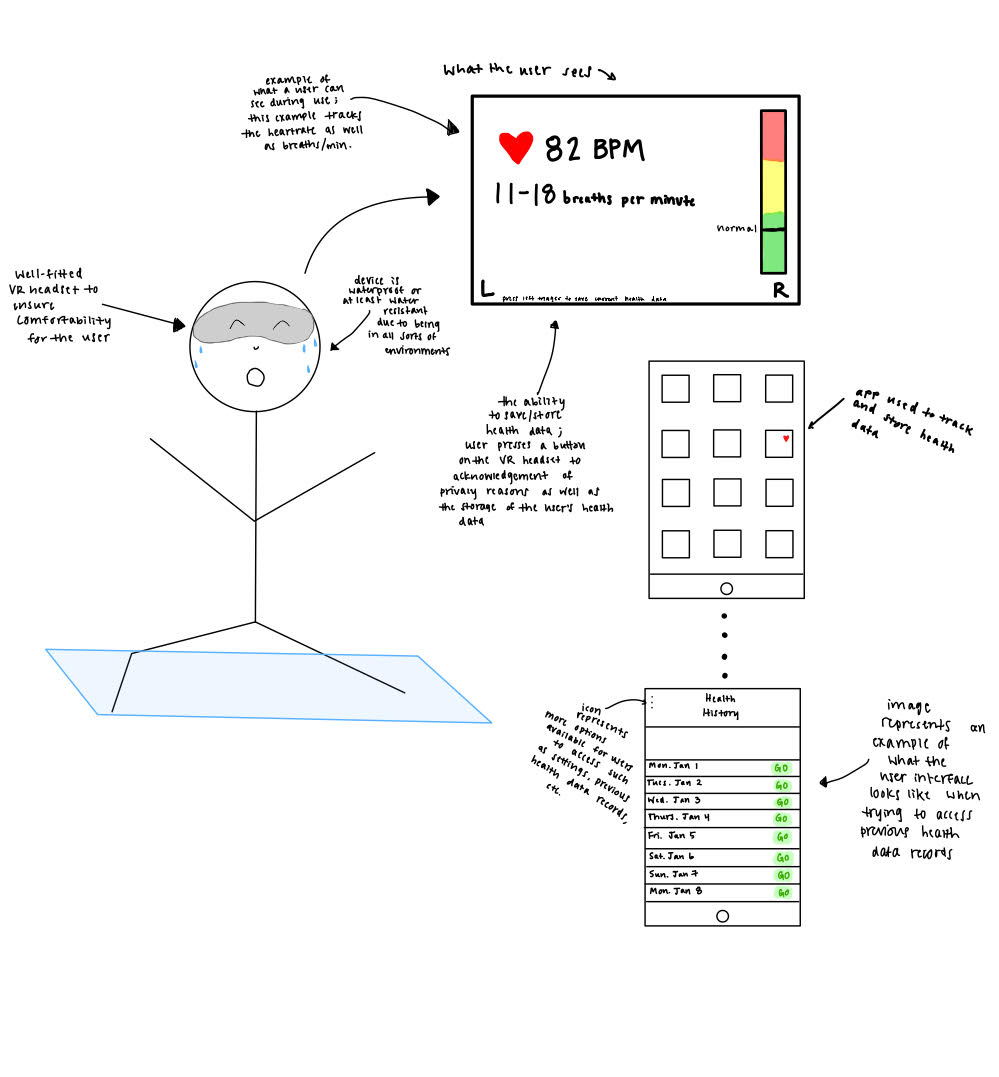 What the user sees
example of
what a user can
see during use;
this example tracks
the heartrate as well
as breaths/min.
82 BPM
11-18 breaths per minute
normal
L
R
press left trigger to save current health data
Well-fitted
VR headset to
ensure
comfortability
for the user
device is
waterproof or
at least water
resistant
due to being
in all sorts of
environments
the ability
to save/store
health data;
user presses a button
on the VR headset to
acknowledgement of
privacy reasons as well as
the storage of the user's health
data
app used to track
and store health
data
icon
represents
more options
available for users
to access such
as settings, previous
health data records,
etc.
Health
History
Mon. Jan 1 GO
Tues. Jan 2 GO
Wed. Jan 3 GO
Thurs. Jan 4 GO
Fri. Jan 5 GO
Sat. Jan 6 GO
Sun. Jan 7 GO
Mon. Jan 8 GO
image
represents an
example of
what the
user interface
looks like when
trying to access
previous health
data records